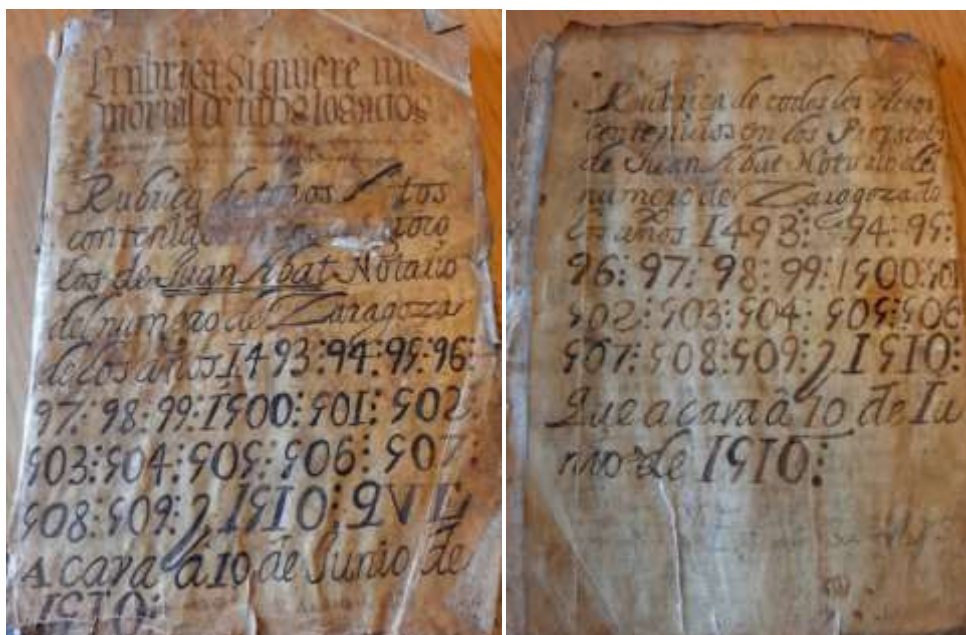 Rubrica siquiere me
morial de todos los actos
Rubrica de todos Actos
contenidos
los de Juan Abat Notario
del numero de Zaragoza
de los años 1493: 94: 95: 96:
97: 98: 99: 1500: 501: 502:
503: 504: 505: 506: 507
508: 509: y 1510: QVE
Acava â 10 de Junio de
1510:
Rubrica de todos los Actos
contenidos en los Protocolos
de Juan Abat Notario del
numero de Zaragoza de
los años 1493: 94: 95:
96: 97: 98: 99: 1500: 501
502: 503: 504: 505: 506
507: 508: 509: y 1510:
Que acava â 10 de Iu
nio de 1510: